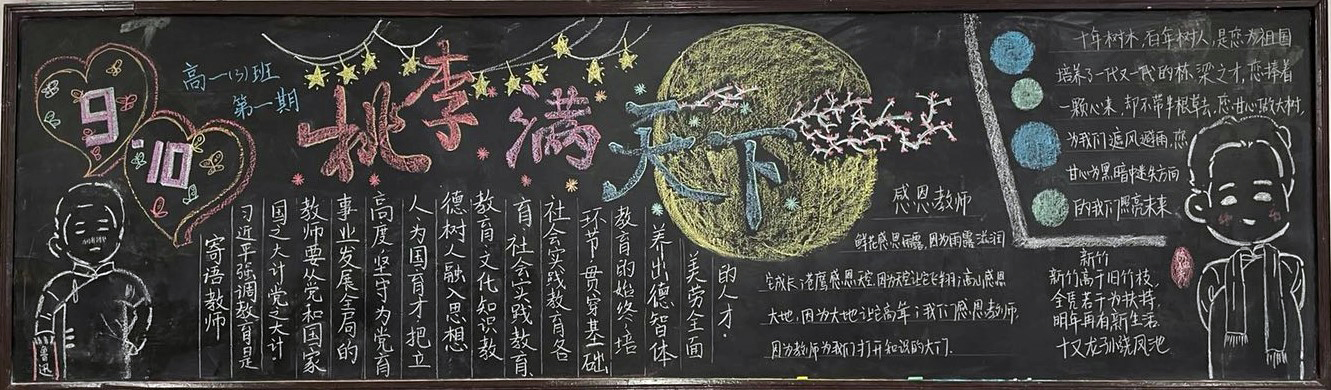 9.10
高一(3)班
第一期
桃李满天下
寄语教师
习近平强调教育是
国之大计党之大计
教师要从党和国家
事业发展全局的
高度坚守为党育
人为国育才把立
德树人融入思想
教育文化知识教
育社会实践教育
社会实践教育各
环节贯穿基础
教育的始终,培
养出德智体
美劳全面
的人才.
鲁迅
感恩教师
鲜花感恩雨露,因为雨露滋润
它成长;苍鹰感恩天空,因为天空让它飞翔;高山感恩
大地,因为大地让它高耸;我们感恩教师,
因为教师为我们打开知识的大门.
十年树木,百年树人,是您为祖国
培养了一代又一代的栋梁之才,您捧着
一颗心来,却不带半根草去,您甘心做大树
为我们遮风避雨,您
甘心为黑暗中迷失方向
的我们照亮未来.
新竹
新竹高于旧竹枝,
全凭老干为扶持.
明年再有新生
十丈龙孙绕凤池